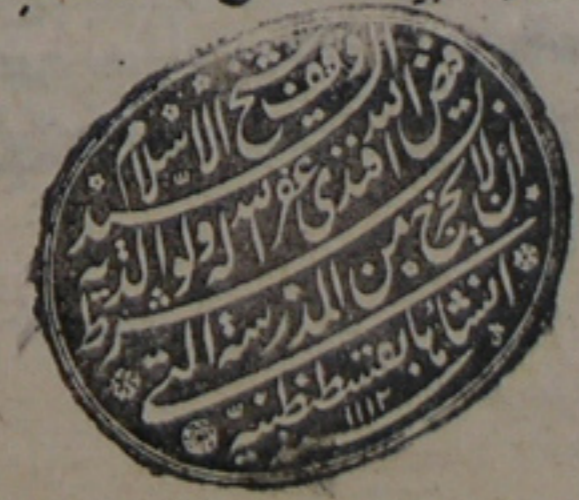 وقف شيخ الاسلام
السيد فيض الله
افندى غفر الله له ولوالديه
بشرط ان لا يخرج من المدرسة التي
انشأها بقسطنطنيّة
١١١٢